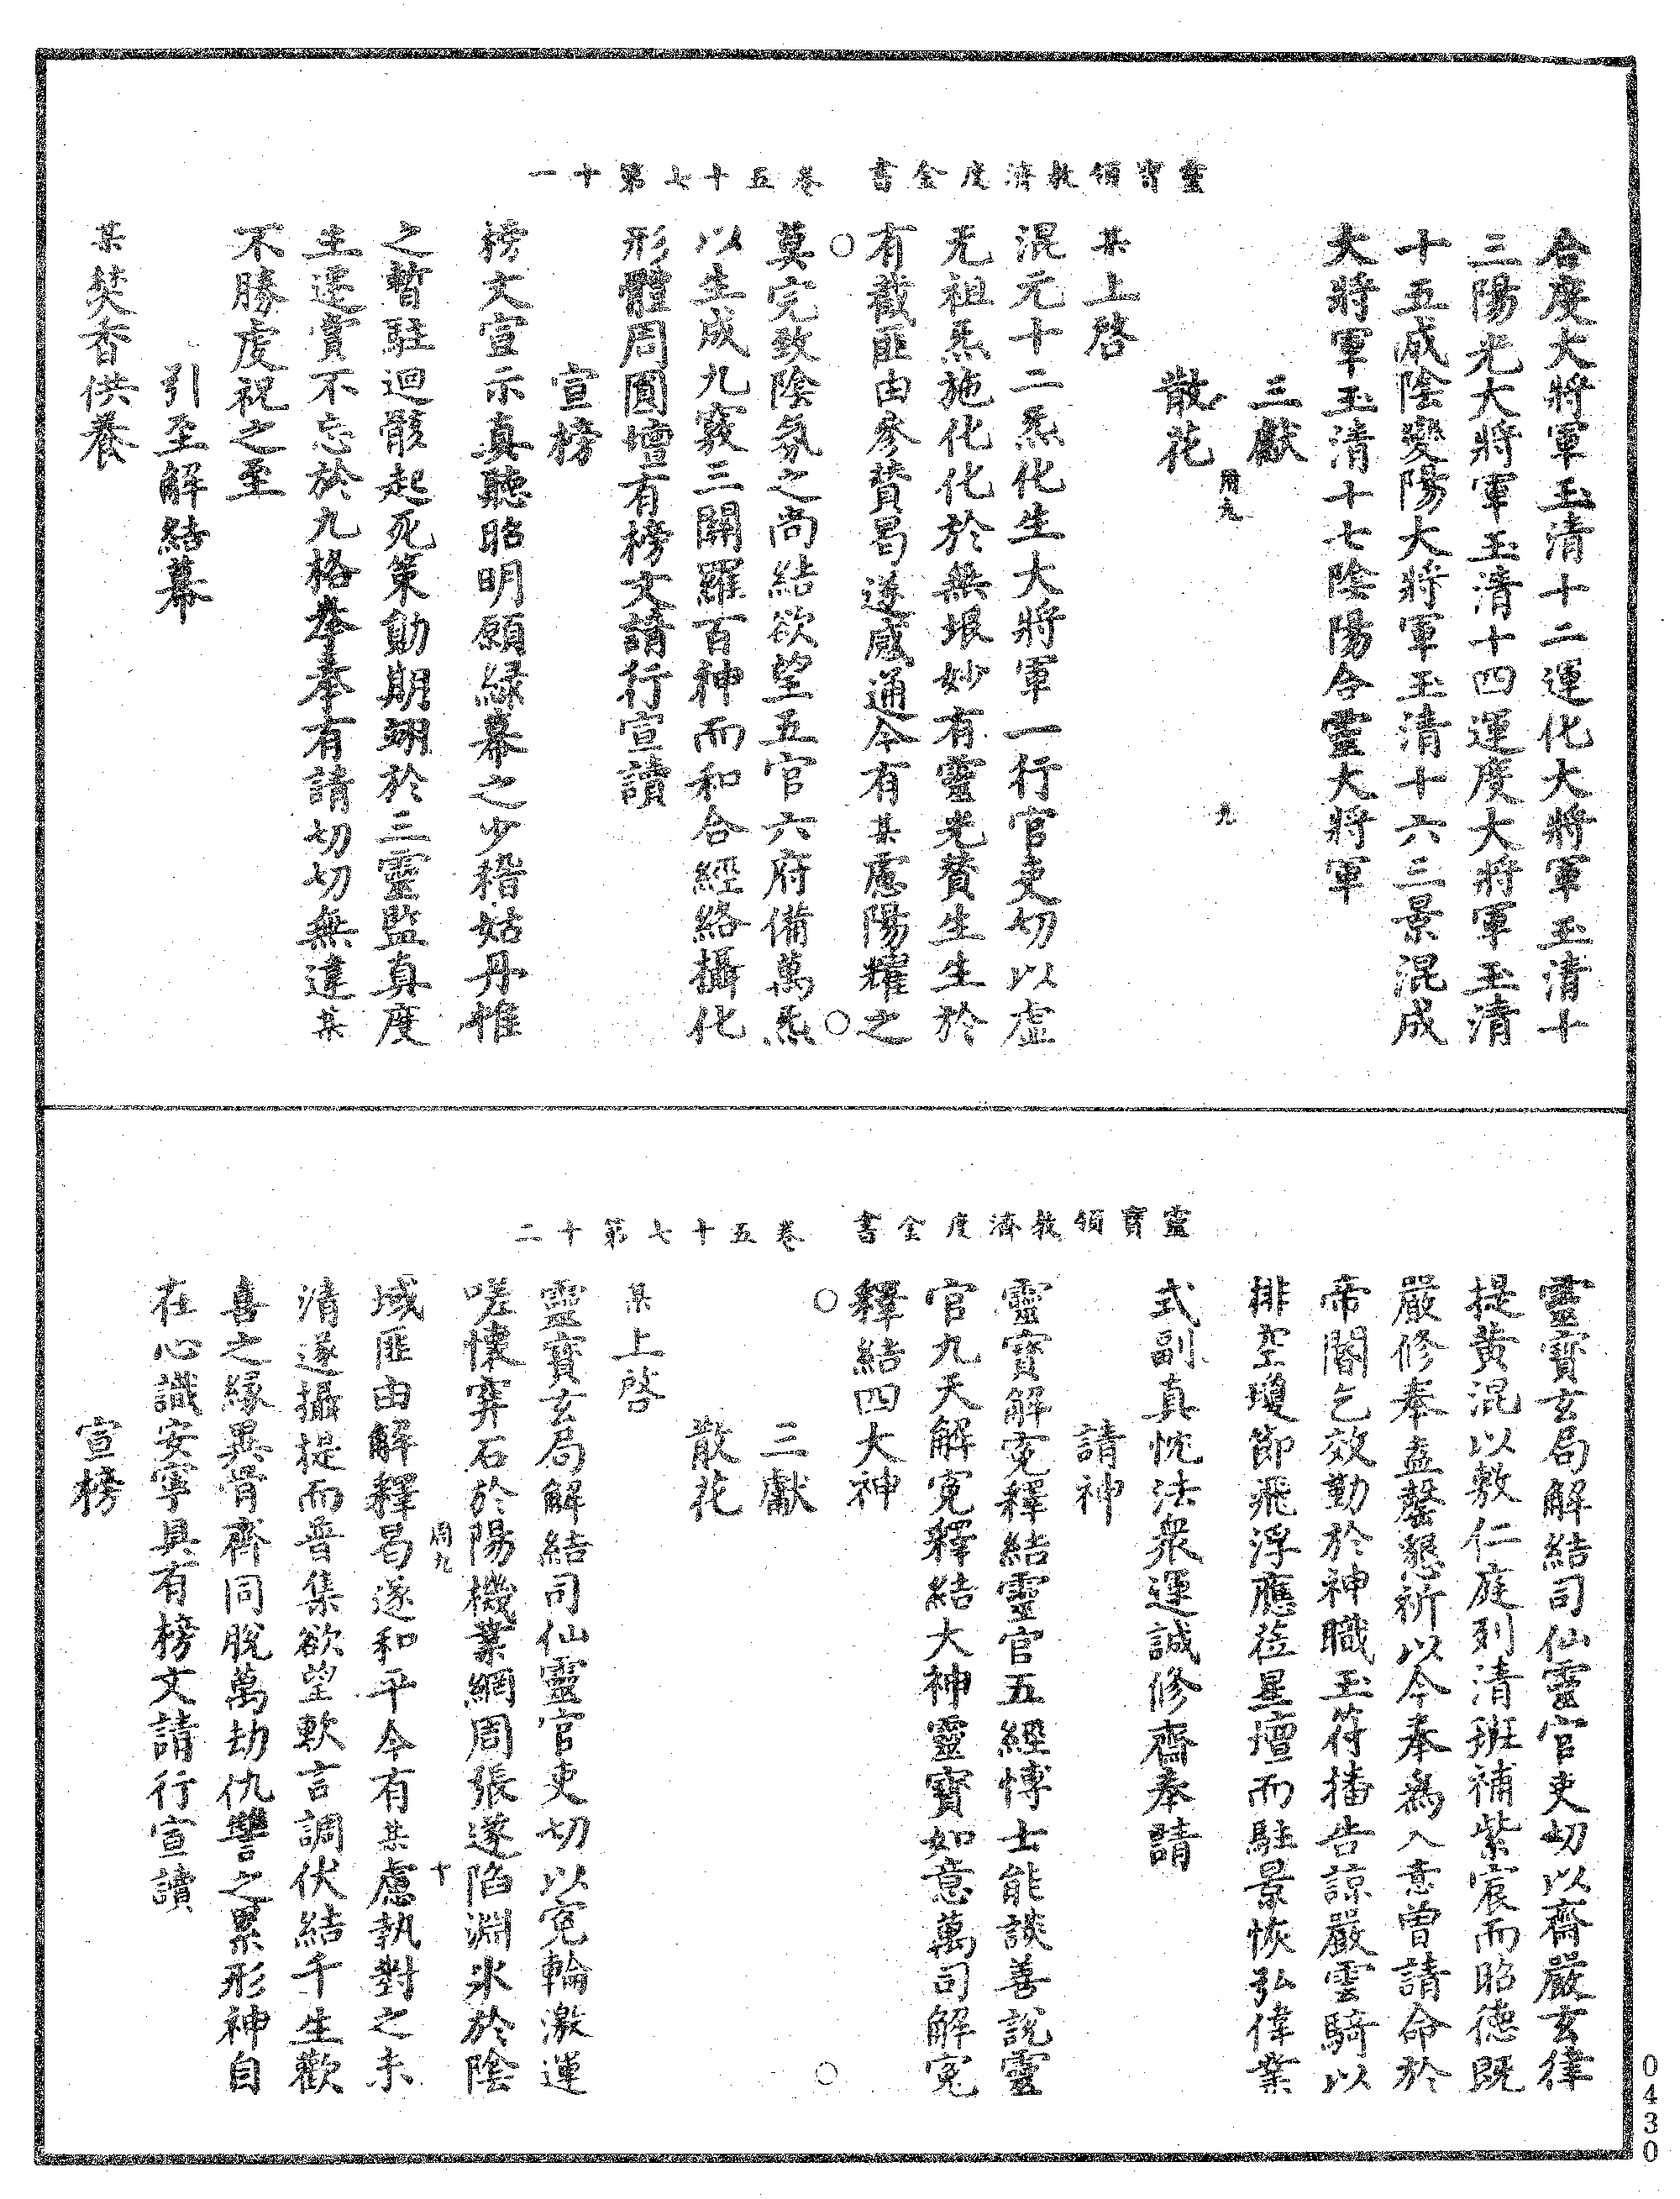 靈寶領教濟度金書　卷五十七第十一
合度大將軍玉清十二運化大將軍玉清十
三陽光大將軍玉清十四運度大將軍玉清
十五咸陰變陽大將軍玉清十六三景混成
大將軍玉清十七陰陽合靈大將軍
三獻
散花
某上啓
混元十二炁化生大將軍一行官吏切以虛
无祖炁施化化於無垠妙有靈光賛生生於
有截匪由參賛曷遂感通今有某慮陽耀之
莫完致陰氛之尚結欲望五官六府備萬炁
以生成九竅三關羅百神而和合經絡攝化
形體周圓壇有榜文請行宣讀
宣榜
榜文宣示真聽昭明願緑幕之少稽姑丹帷
之暫駐迴骸起死策勛期翊於三靈監真度
生運賞不忘於九格拳拳有請切切無違某
不勝虔祝之至
引至解結幕
某焚香供養
靈寶領教濟度金書　卷五十七第十二
靈寶玄局解結司仙靈官吏切以齋嚴玄律
提黄混以敷仁庭列清班補紫宸而昭德既
嚴修奉盍罄懇祈以今奉爲入意曾請命於
帝閽乞效勤於神職玉符播告諒嚴雲騎以
排空瓊節飛浮應莅星壇而駐景恢弘偉業
式副真忱法衆運誠修齋奉請
請神
靈寶解寃釋結靈官五經愽士能談善說靈
官九天解寃釋結大神靈寶如意萬司解寃
釋結四大神
三獻
散花
某上啓
靈寶玄局解結司仙靈官吏切以寃輪激運
嗟懷穽石於陽機業網周張遂陷淵氷於陰
域匪由解釋曷遂和平今有某慮執對之未
清遂攝提而普集欲望軟言調伏結千生歡
喜之緣異骨齊同脫萬劫仇讐之累形神自
在心識安寧具有榜文請行宣讀
宣榜
周九
九
周九
十
0430